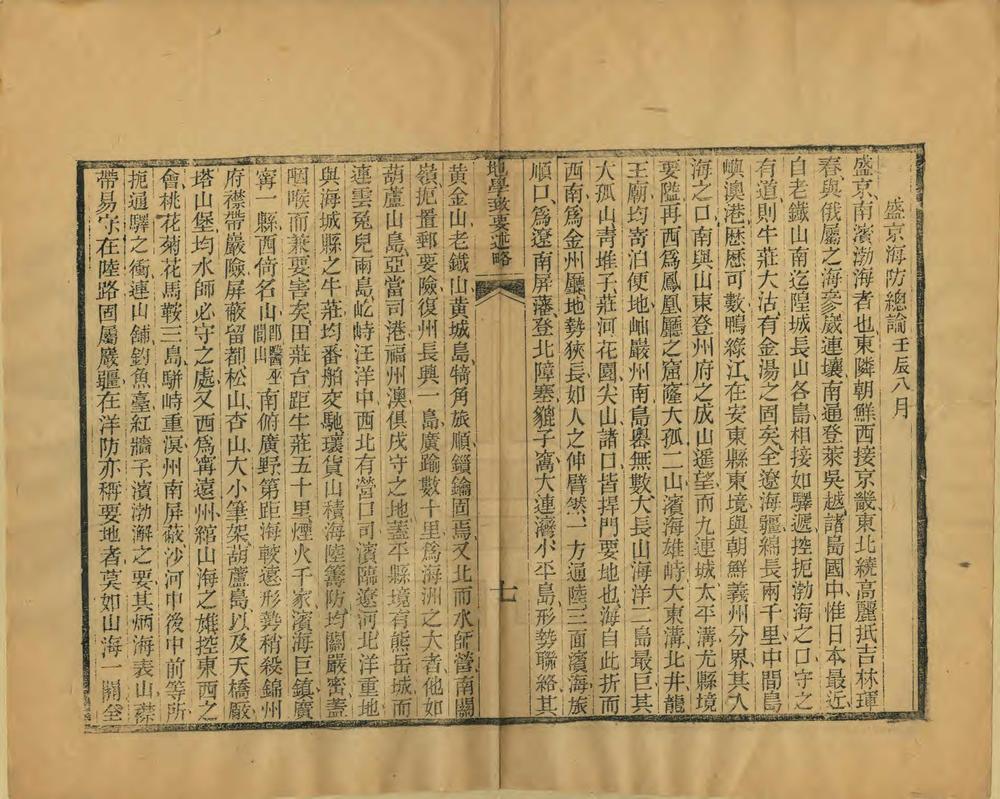 盛京海防總論壬辰八月
盛京南濱渤海者也東隣朝鮮西接京畿東北繞高麗抵吉林琿
春與俄屬之海參崴連壤南通登萊吳越諸島國中惟日本最近
自老鐵山南迄隍城長山各島相接如驛遞控扼渤海之口守之
有道則牛莊大沽有金湯之固矣全遼海疆綿長兩千里中間島
嶼澳港歷歷可數鴨綠江在安東縣東境與朝鮮義州分界其入
海之口南與山東登州府之成山遥望而九連城太平溝尤縣境
要隘再西爲鳳凰廳之窟窿大孤二山濱海雄峙大東溝北井龍
王廟均寄泊便地岫巖州南島嶴無數大長山海洋二島最巨其
大孤山靑堆子莊河花園尖山諸口皆捍門要地也海自此折而
西南爲金州廳地勢狹長如人之伸臂然一方通陸三面濱海旅
順口爲遼南屏藩登北障塞貔子窩大連灣小平島形勢聯絡其
地學述要述略
七
黃金山老鐵山黃城島犄角旅順鎖鑰固焉又北而水師營南關
嶺扼置郵要險復州長興一島廣踰數十里爲海洲之大者他如
葫蘆山島亞當司港福州澳俱戍守之地蓋平縣境有熊岳城而
連雲兔兒兩島屹峙汪洋中西北有營口司濱臨遼河北洋重地
與海城縣之牛莊均番舶交馳瓌貨山積海陸籌防均關嚴密蓋
咽喉而兼要害矣田莊台距牛莊五十里煙火千家濱海巨鎮廣
甯一縣西倚名山卽醫巫閭山南俯廣野第距海較遠形勢稍殺錦州
府襟帶嚴險屏蔽留都松山杏山大小筆架葫蘆島以及天橋厰
塔山堡均水師必守之處又西爲甯遠州綰山海之雄控東西之
會桃花菊花馬鞍三島駢峙重溟州南屏蔽沙河中後中前等所
扼通驛之衝連山舖釣魚臺紅牆子濱渤澥之要其炳海表山襟
帶易守在陸路固屬巖疆在洋防亦稱要地者莫如山海一關全